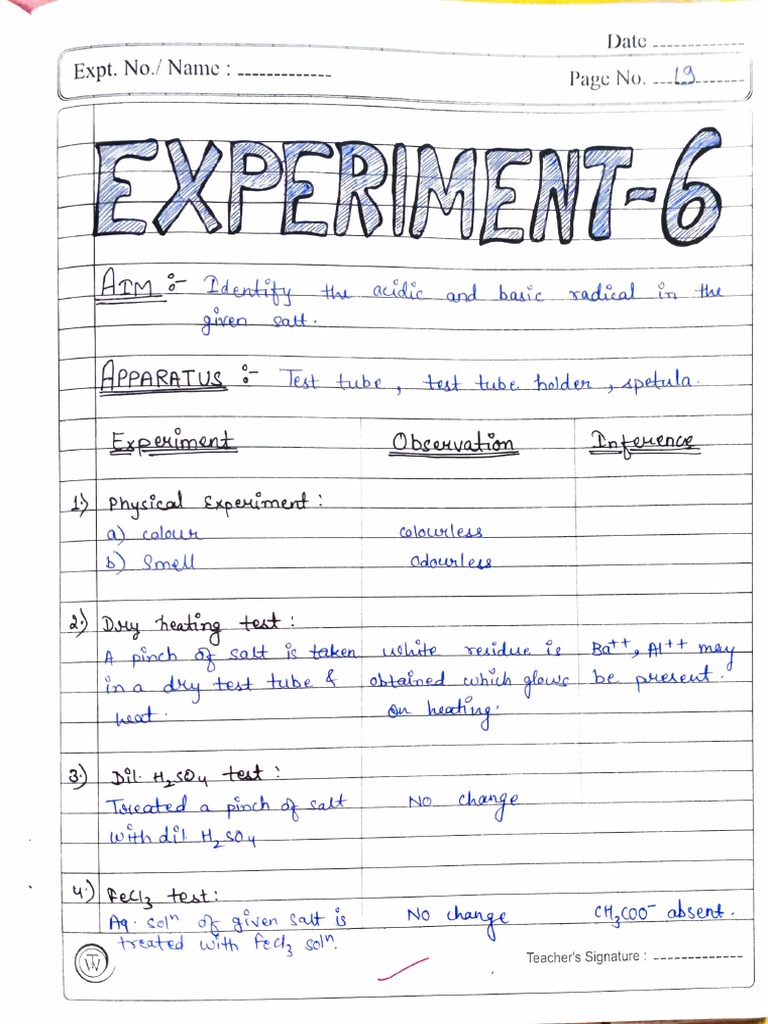 Date
Expt. No./ Name :
Page No. 19
EXPERIMENT-6
AIM :- Identify the acidic and basic radical in the
given salt.
APPARATUS :- Test tube, test tube holder, spetula.
Experiment Observation Inference
1.) Physical Experiment :
a) colour colourless
b) Smell odourless
2.) Dry heating test :
A pinch of salt is taken white residue is Ba++, Al++ may
in a dry test tube & obtained which glows be present.
heat. on heating.
3.) Dil. H2SO4 test :
Treated a pinch of salt No change
with dil. H2SO4
4.) FeCl3 test :
Aq. soln of given salt is No change CH3COO- absent.
treated with FeCl3 soln.
Teacher's Signature :